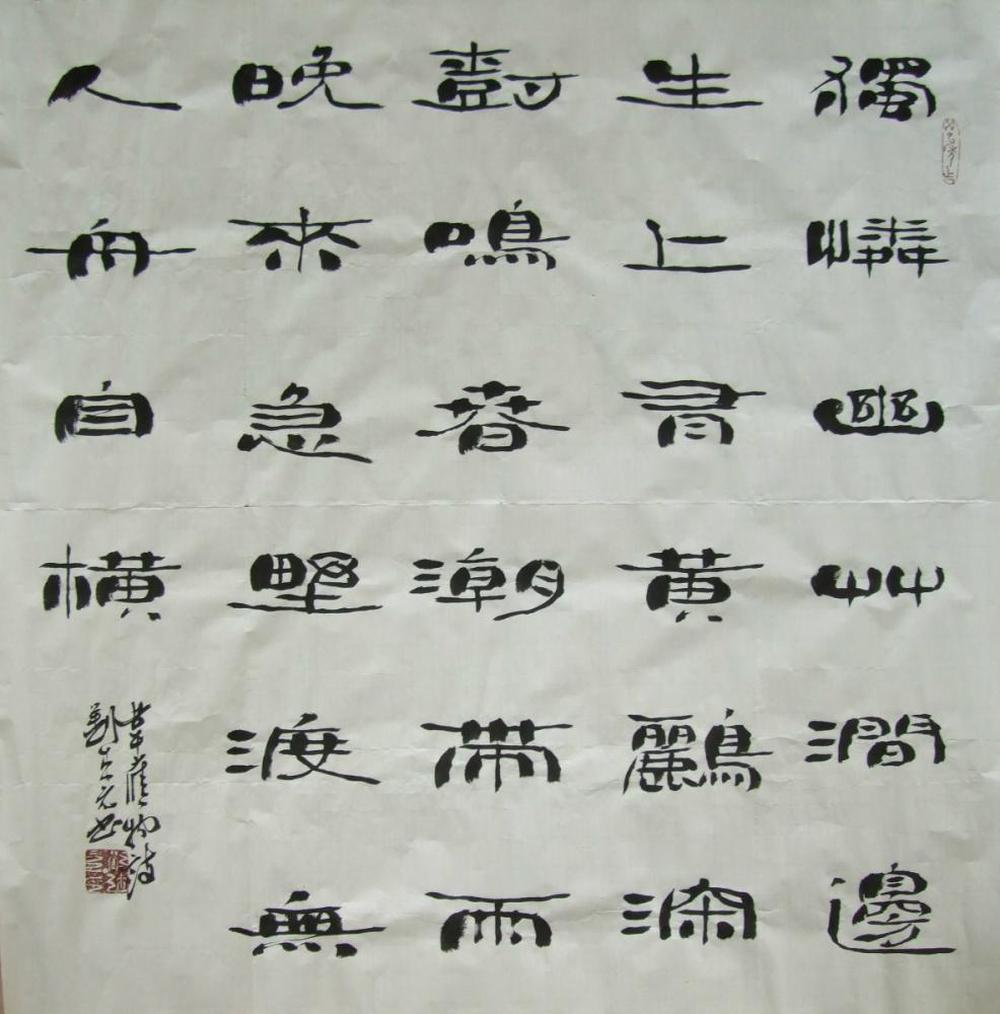 獨憐幽艸澗邊
生上有黃鸝深
樹鳴春潮帶雨
晚來急野渡無
人舟自橫
韋應物詩
劉元书